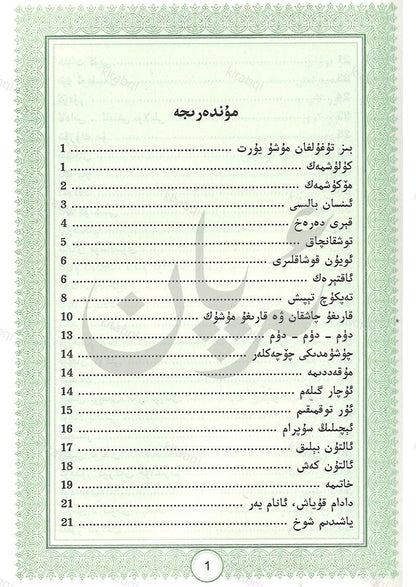 مۇندەرىجە
بىز تۇغۇلغان مۇشۇ يۇرت ........ 1
كۈلۈشمەك ........ 1
مۆكۈشمەك ........ 2
ئىنسان بالىسى ........ 3
قېرى دەرەخ ........ 4
توشقانچاق ........ 5
ئويۇن قوشاقلىرى ........ 6
ئاقتېرەك ........ 6
تەپكۈچ تېپىش ........ 8
قارىغۇ چاشقان ۋە قارىغۇ مۈشۈك ........ 10
دۈم - دۈم - دۈم ........ 13
چۈشۈمدىكى چۆچەكلەر ........ 14
مۇقەددىمە ........ 14
ئۇچار گىلەم ........ 14
ئۇر توقمىقىم ........ 15
ئېچىلىڭ سۇپرام ........ 16
ئالتۇن بېلىق ........ 17
ئالتۇن كەش ........ 18
خاتىمە ........ 19
دادام قۇياش، ئانام يەر ........ 21
ياشىدىم شوخ ........ 21
1